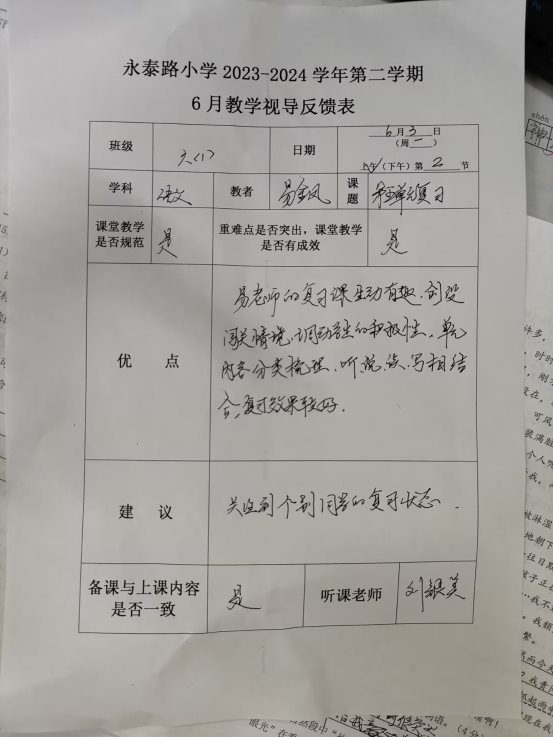 永泰路小学 2023-2024 学年第二学期
6 月教学视导反馈表
班级 六(1) 日期 6 月 3 日
(周一)
上午/(下午)第 2 节
学科 语文 教者 易金凤 课题 单元复习
课堂教学是否规范 是 重难点是否突出，课堂教学是否有成效 是
优 点
易老师的复习课生动有趣，创设
闯关情境，调动学生的积极性，单元
内容分类梳理，听、说、读、写相结
合，复习效果较好．
建 议
关注到个别同学的复习状态．
备课与上课内容是否一致 是 听课老师 刘银美